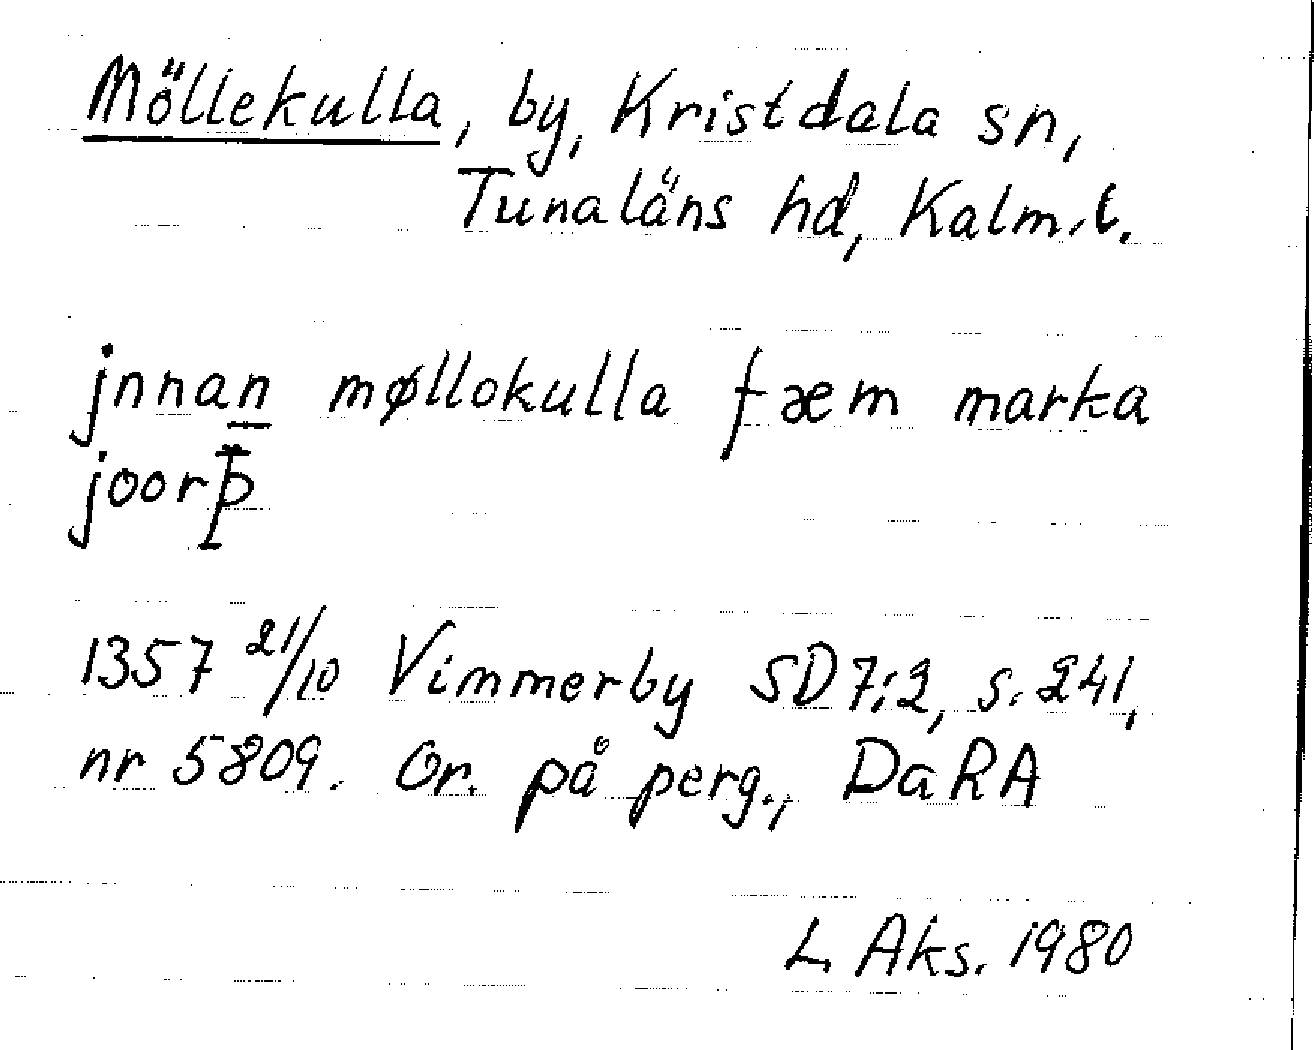 Möllekulla, by, Kristdala sn,
Tunaläns hd, Kalm.l.
jnnan møllokulla fæm marka
joorþ
1357 21/10 Vimmerby SD 7:2, s. 241,
nr 5809. Or. på perg., DaRA
L Aks. 1980